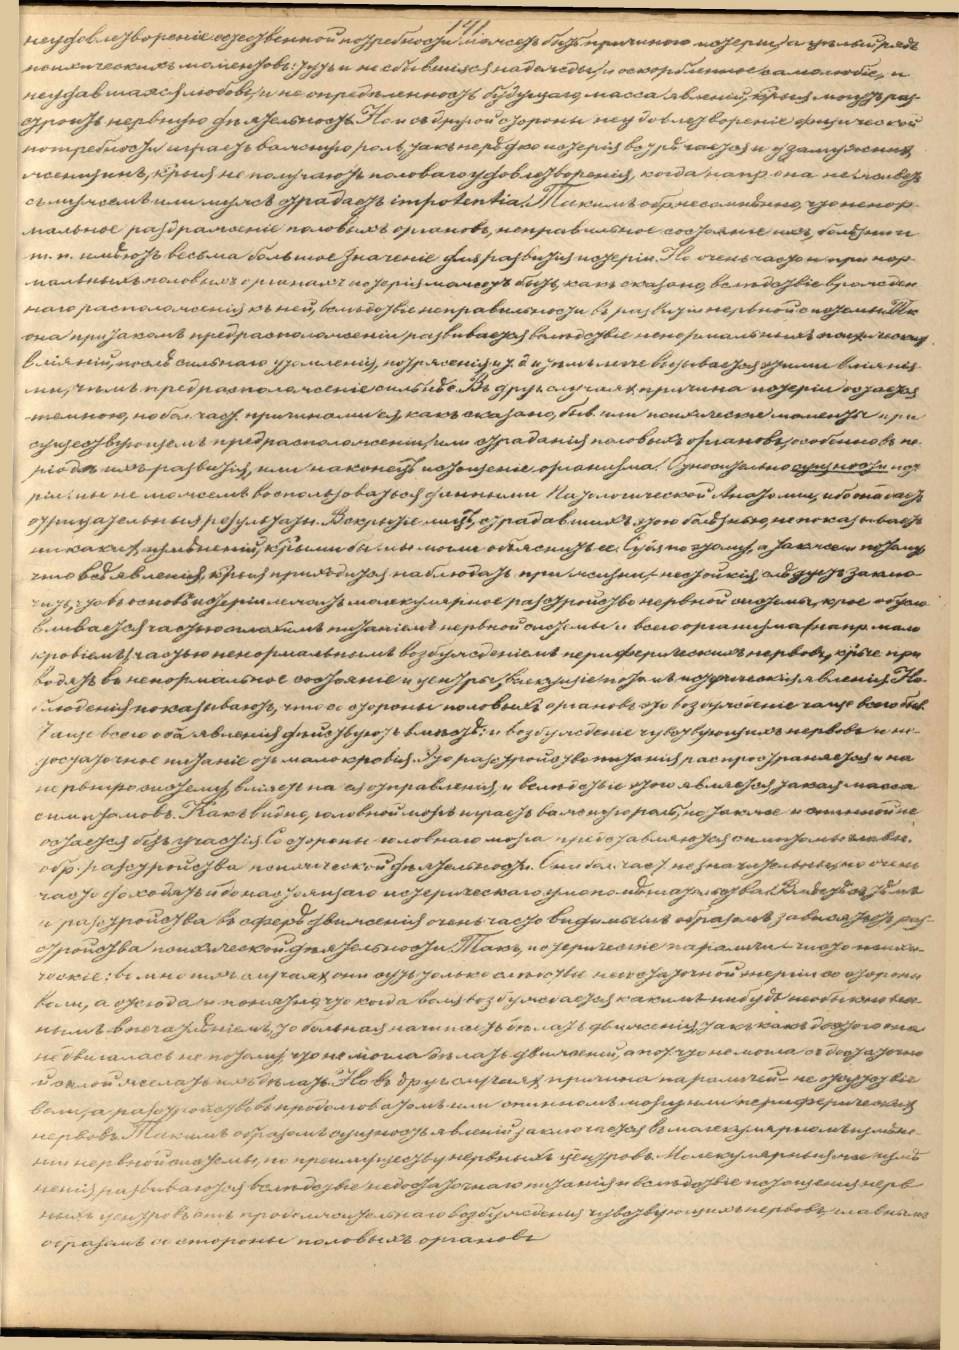 141
неудовлетвореніе естественной потребности можетъ быть причиною истеріи, а цѣлый рядъ
психическихъ моментовъ: тутъ и не сбывшіяся надежды, и оскорбленное самолюбіе, и
неудавшаяся любовь, и не опредѣленность будущаго, масса явленій, крыя могутъ раз-
строить нервную дѣятельность. Но и съ другой стороны неудовлетвореніе физической
потребности играетъ важную роль, такъ нерѣдко истерія встрѣчается и у замужнихъ
женщинъ, крыя не получаютъ половаго удовлетворенія, когда напр. она не живетъ
съ мужемъ или мужъ страдаетъ impotentia. Такимъ обр. несомнѣнно, что ненор-
мальное раздраженіе половыхъ органовъ, неправильное состояніе ихъ, болѣзни и
т. п. имѣютъ весьма большое значеніе для развитія истеріи. Но очень часто и при нор-
мальныхъ половыхъ органахъ истерія можетъ быть, какъ сказано, вслѣдствіе врожден-
наго расположенія къ ней, вслѣдствіе неправильности въ развитіи нервной системы. Тк
она при такомъ предрасположеніи развивается вслѣдствіе ненормальныхъ психическихъ
вліяній, послѣ сильнаго утомленія, потрясенія и т. д. и тѣмъ легче вызывается этими вліяні-
ми, чѣмъ предрасположеніе сильнѣе. Въ друг. случаяхъ причина истеріи остается
темною, но бол. част. причинами ея, какъ сказано, быв. или психическіе моменты при
существующемъ предрасположеніи, или страданія половыхъ органовъ, особенно въ пе-
ріодъ ихъ развитія, или наконецъ истощеніе организма. Относительно сущности исте
ріи мы не можемъ воспользоваться данными Патологической Анатоміи, ибо она даетъ
отрицательные результаты. Вскрытіе лицъ, страдавшихъ этою болѣзнью, не показываетъ
никакихъ измѣненій, крыми бы мы могли объяснить ее. Судя по этому, а также и потому
что всѣ явленія, крыя приходится наблюдать при жизни, нестойкія, слѣдуетъ заклю-
чить, что въ основѣ истеріи лежатъ молекулярное разстройство нервной системы, крое обусло
вливается частью плохимъ питаніемъ нервной системы и всего организма (напр. мало
кровіемъ), частью ненормальнымъ возбужденіемъ периферическихъ нервовъ, крые при
водятъ въ ненормальное состояніе и центры, влекущіе потомъ истерическія явленія. На-
блюденія показываютъ, что со стороны половыхъ органовъ это возбужденіе чаще всего быв.
Чаще всего оба явленія дѣйствуютъ вмѣстѣ: и возбужденіе чувствующихъ нервовъ и не-
достаточное питаніе отъ малокровія. Это разстройство питанія распространяется и на
нервную систему, вліяетъ на ея отправленія, и вслѣдствіе этого является такая масса
симптомовъ. Какъ видно, головной мозгъ играетъ важную роль, но также и спинной не
остается безъ участія. Со стороны головнаго мозга представляются симптомы главн.
обр. разстройства психической дѣятельности. Они бол. част. незначительны, но очень
часто доходятъ и до настоящаго истерическаго умопомѣшательства. Вмѣстѣ съ тѣмъ
и разстройства въ сферѣ движенія очень часто видимымъ образомъ зависятъ отъ раз-
стройства психической дѣятельности. Такъ, истерическіе параличи чисто психи-
ческіе: во многихъ случаяхъ они суть только слѣдствіе недостаточной энергіи со стороны
воли, а отсюда и понятно, что когда воля возбуждается какимъ нибудь необыкновен-
нымъ впечатлѣніемъ, то больная начинаетъ дѣлать движенія, такъ какъ до этого она
не двигалась не потому, что не могла дѣлать движеній, а пот. что не могла съ достаточно
й силой желать ихъ дѣлать. Но въ друг. случаяхъ причина параличей не отсутствіе
воли, а разстройство въ продолговатомъ или спинномъ мозгу или периферическихъ
нервовъ. Такимъ образомъ сущность явленій заключается въ молекулярномъ измѣне-
ніи нервной системы, по преимуществу нервныхъ центровъ. Молекулярныя же измѣ
ненія развиваются вслѣдствіе недостаточнаго питанія и вслѣдствіе истощенія нерв
ныхъ центровъ отъ продолжительнаго возбужденія чувствующихъ нервовъ, главнымъ
образомъ со стороны половыхъ органовъ